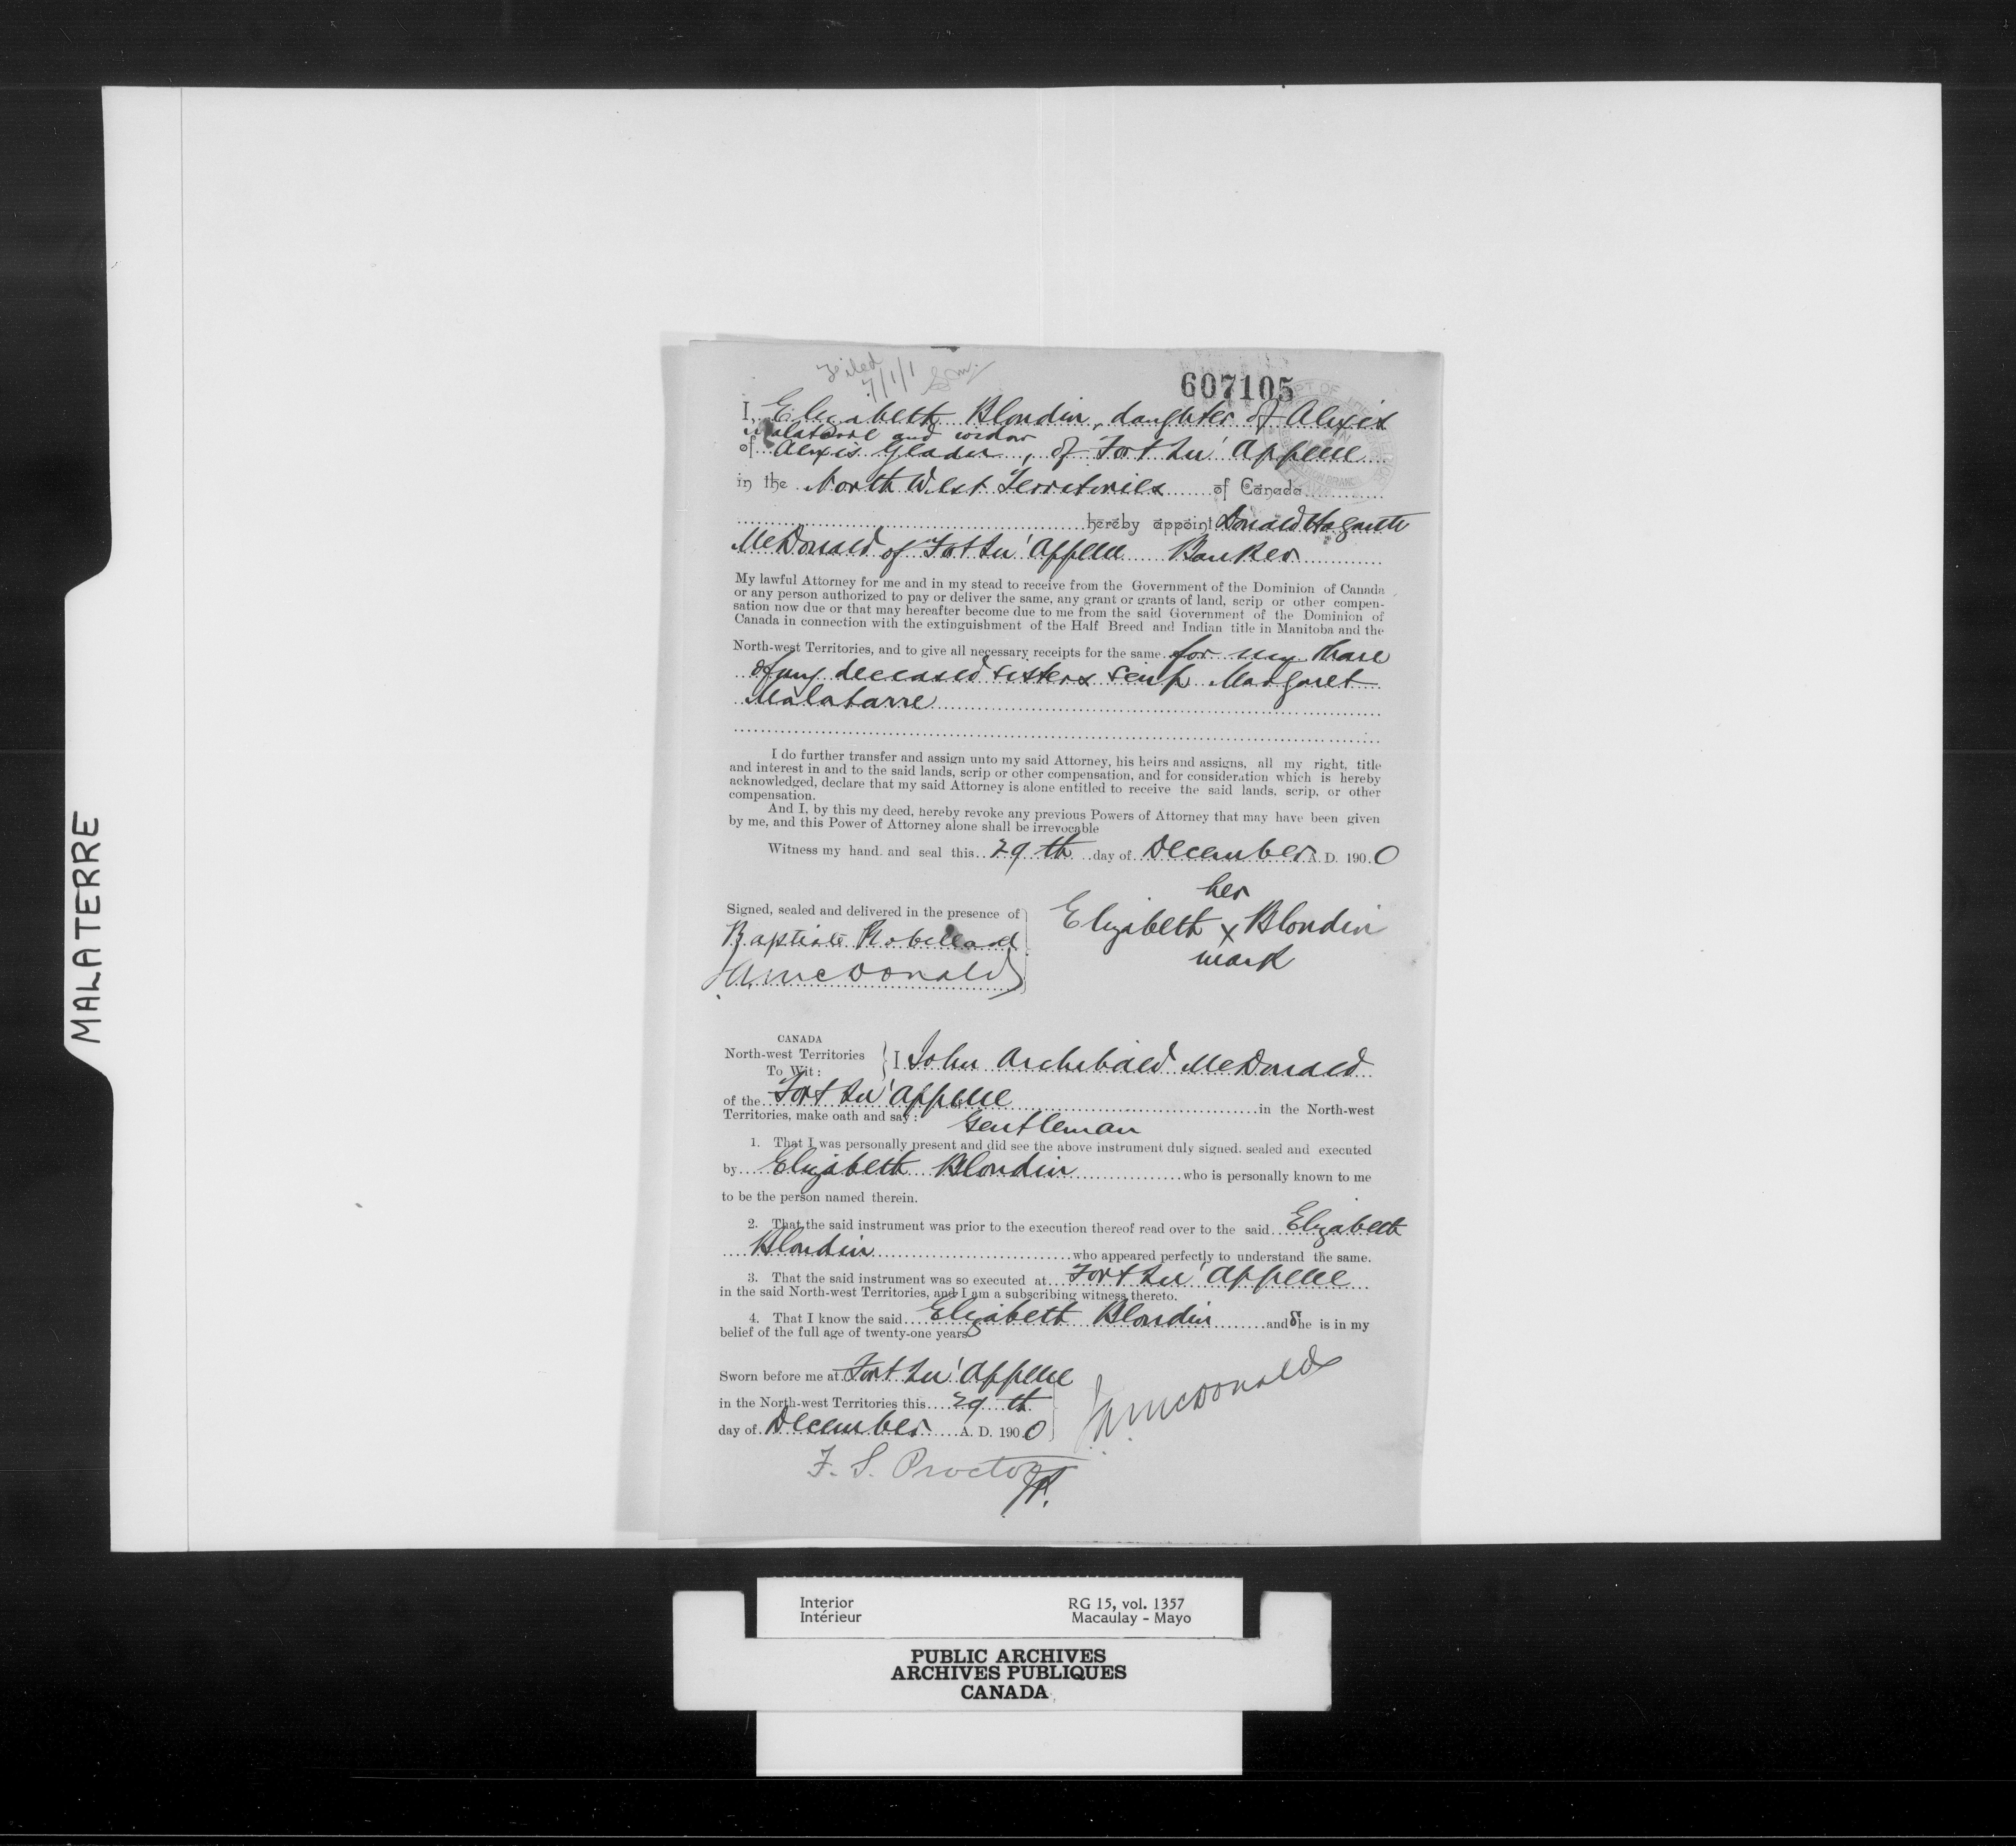 MALATERRE
Filed
7/1/1
607105
I, Elizabeth Blondin, daughter of Alexis
Malaterre and widow
of Alexis Gladu, of Fort Qu'Appelle
in the North West Territories of Canada
hereby appoint Donald Hogarth
McDonald of Fort Qu'Appelle Banker
My lawful Attorney for me and in my stead to receive from the Government of the Dominion of Canada
or any person authorized to pay or deliver the same, any grant or grants of land, scrip or other compen-
sation now due or that may hereafter become due to me from the said Government of the Dominion of
Canada in connection with the extinguishment of the Half Breed and Indian title in Manitoba and the
North-west Territories, and to give all necessary receipts for the same for my share
of my deceased sisters scrip Margaret
Malatarre
I do further transfer and assign unto my said Attorney, his heirs and assigns, all my right, title
and interest in and to the said lands, scrip or other compensation, and for consideration which is hereby
acknowledged, declare that my said Attorney is alone entitled to receive the said lands, scrip, or other
compensation.
And I, by this my deed, hereby revoke any previous Powers of Attorney that may have been given
by me, and this Power of Attorney alone shall be irrevocable
Witness my hand and seal this 29th day of December A. D. 1900
her
Signed, sealed and delivered in the presence of
Elizabeth x Blondin
mark
Baptiste Robillard
JA McDonald
CANADA
North-west Territories
To Wit:
I John Archibald McDonald
of the Fort Qu'Appelle in the North-west
Territories, make oath and say: Gentleman
1. That I was personally present and did see the above instrument duly signed, sealed and executed
by Elizabeth Blondin who is personally known to me
to be the person named therein.
2. That the said instrument was prior to the execution thereof read over to the said Elizabeth
Blondin who appeared perfectly to understand the same.
3. That the said instrument was so executed at Fort Qu'Appelle
in the said North-west Territories, and I am a subscribing witness thereto.
4. That I know the said Elizabeth Blondin and She is in my
belief of the full age of twenty-one years
Sworn before me at Fort Qu'Appelle
in the North-west Territories this 29th
day of December A. D. 1900
JA McDonald
F. S. Proctor
J.P.
Interior
Intérieur
RG 15, vol. 1357
Macaulay - Mayo
PUBLIC ARCHIVES
ARCHIVES PUBLIQUES
CANADA